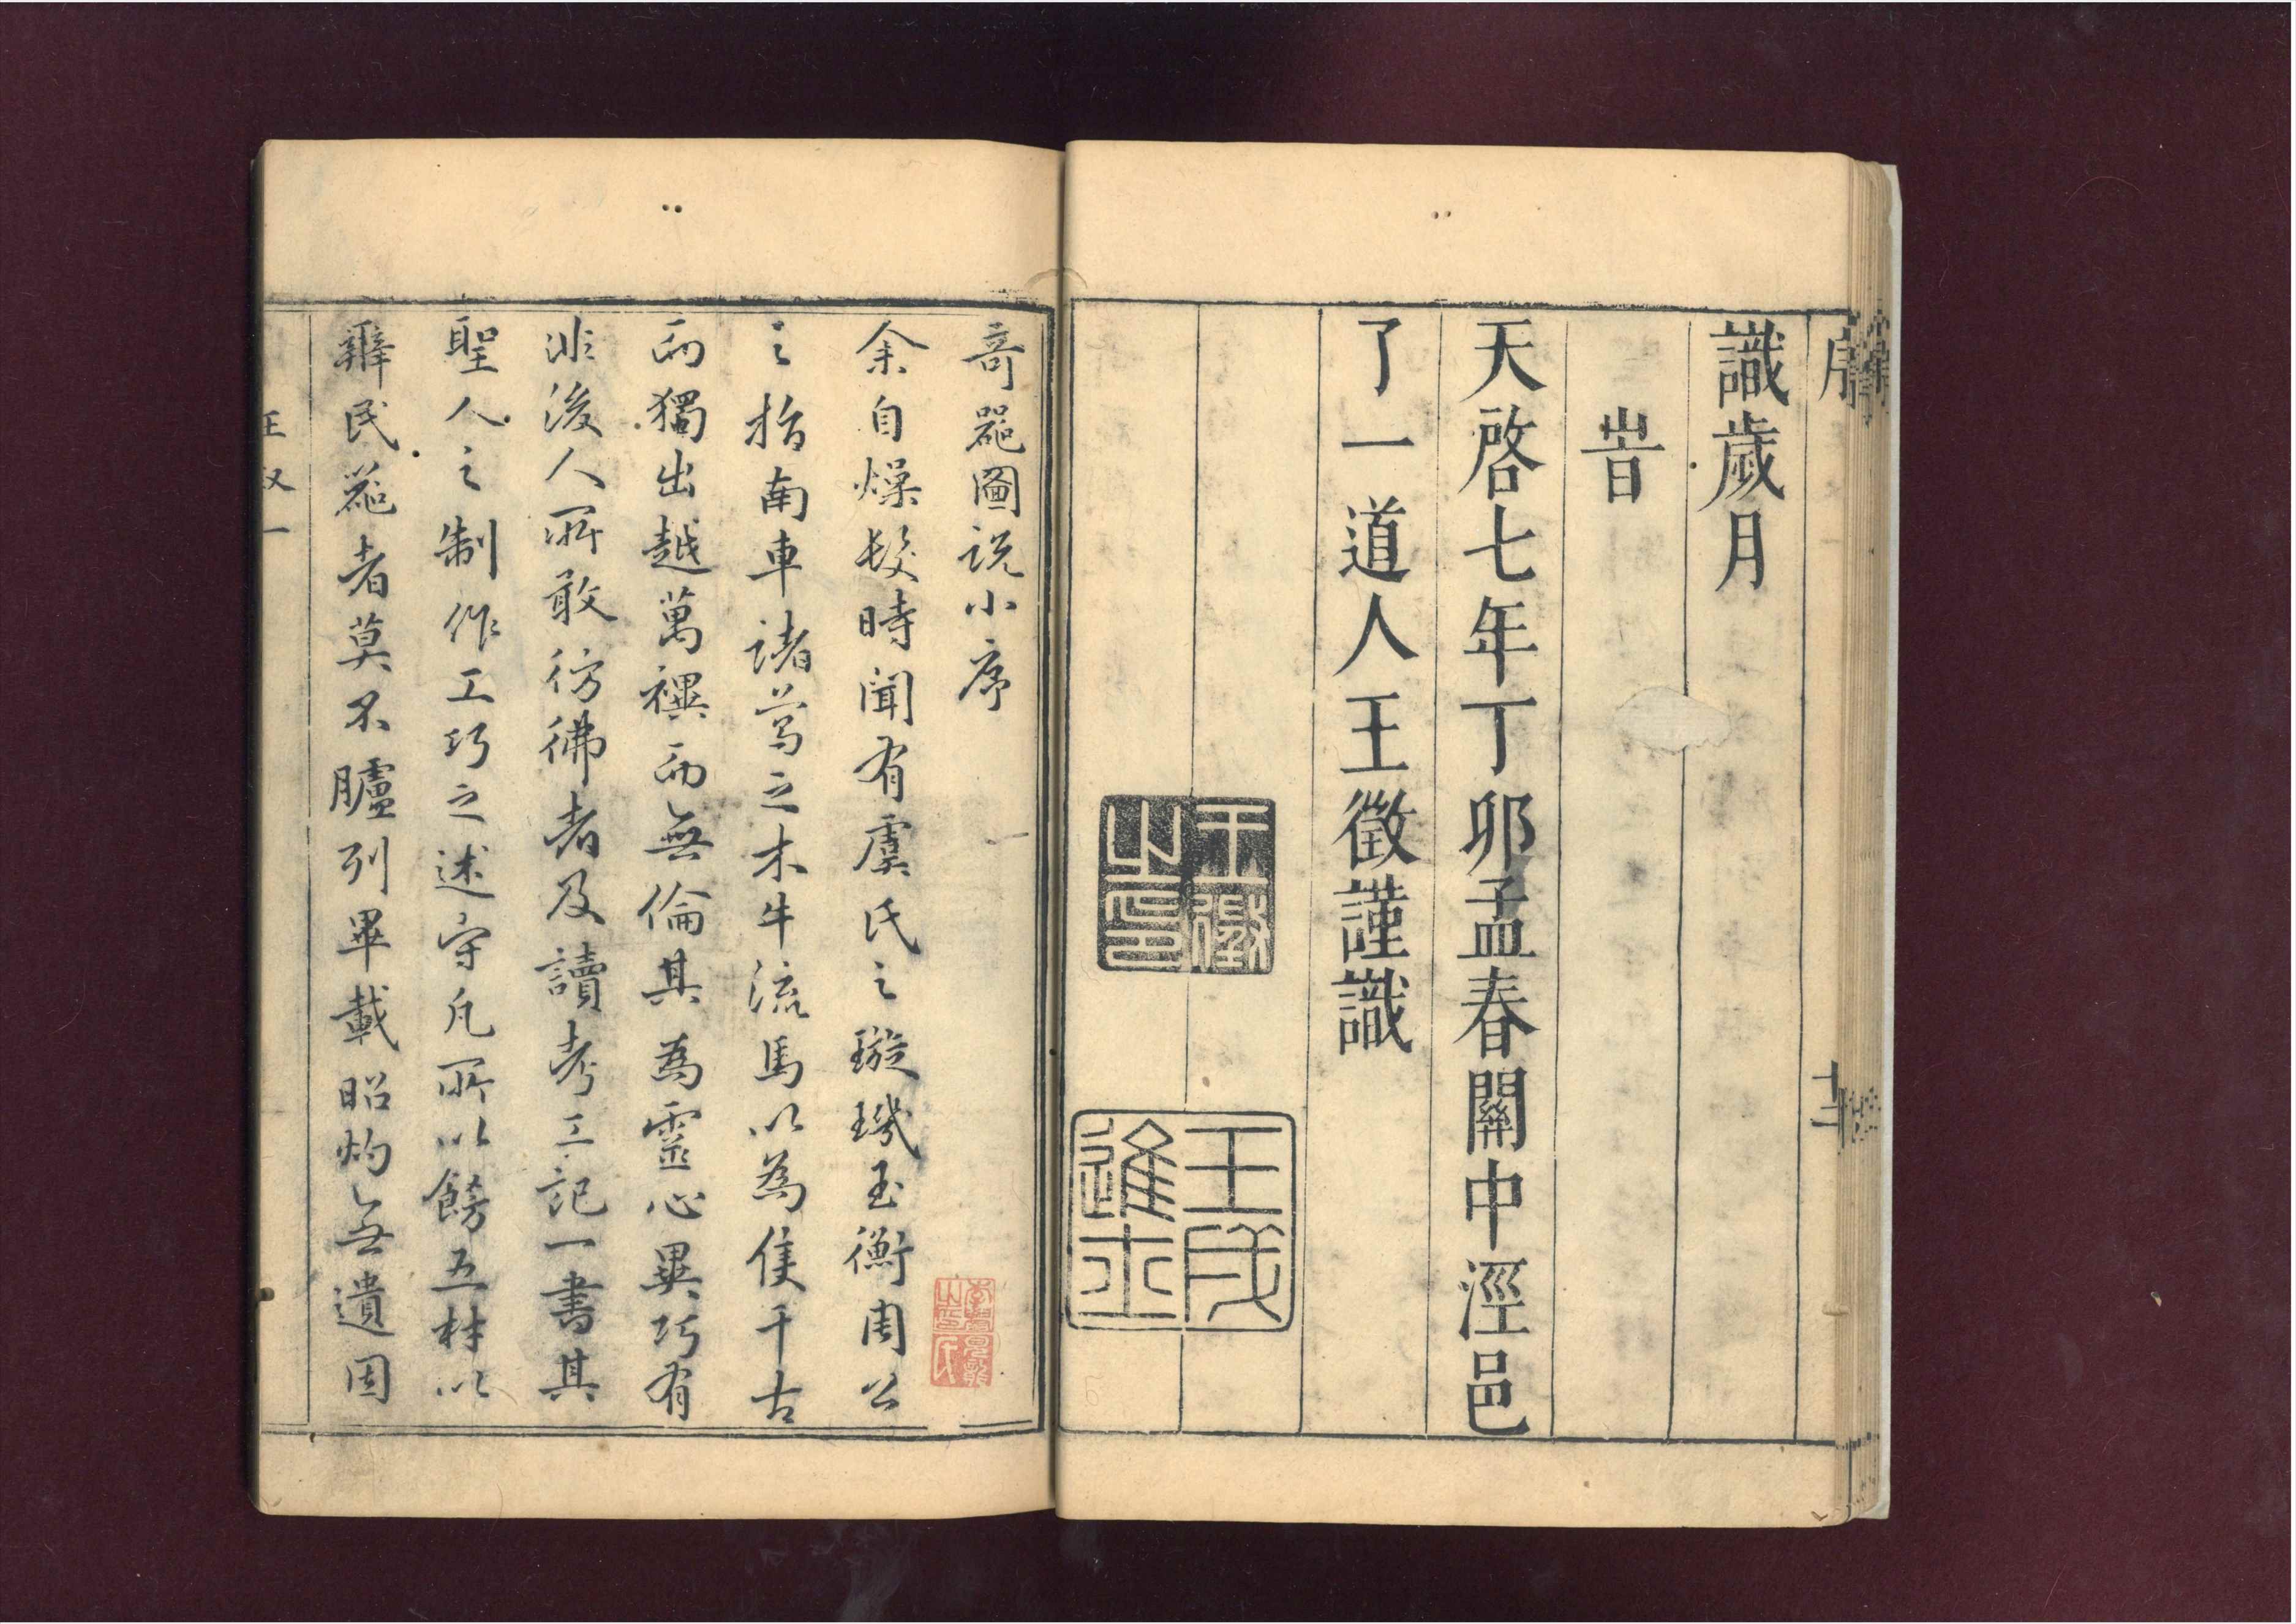 識歲月
旹
天啓七年丁卯孟春關中涇邑
了一道人王徵謹識
王徵之印
王戌進士
十二
奇器圖說小序
余自燥髮時聞有虞氏之璇璣玉衡周公
之指南車諸葛之木牛流馬以為隻千古
而獨出越萬禩而無倫其為靈心異巧有
非後人所敢彷彿者及讀考工記一書其
聖人之制作工巧之述守凡所以餝五材以
辨民器者莫不臚列畢載昭灼無遺因
王叙一